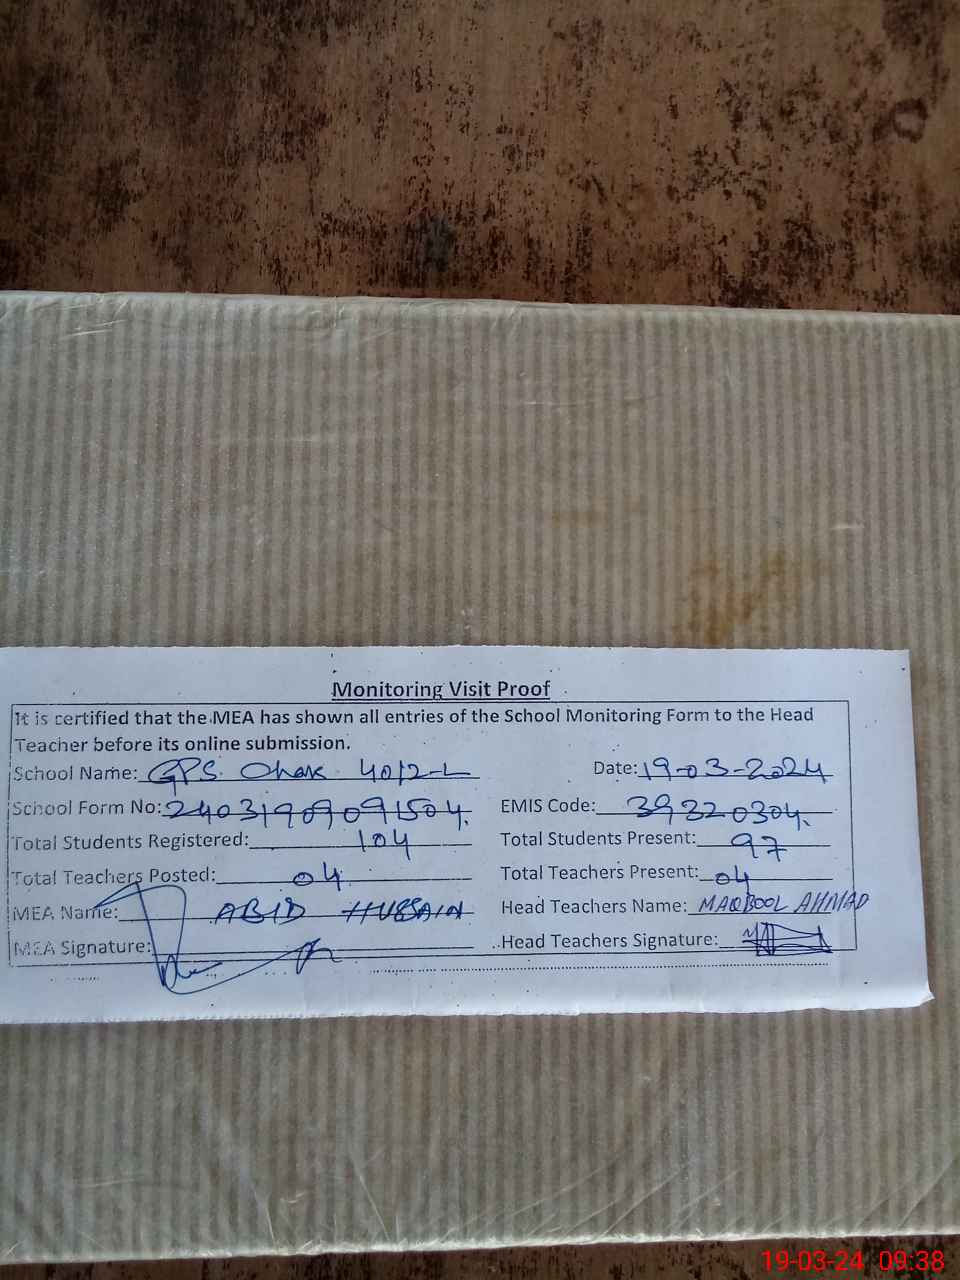 Monitoring Visit Proof
It is certified that the MEA has shown all entries of the School Monitoring Form to the Head
Teacher before its online submission.
School Name: GPS. Chak 40/2-L Date: 19-03-2024
School Form No: 24031909091504. EMIS Code: 39320304.
Total Students Registered: 104 Total Students Present: 97
Total Teachers Posted: 04 Total Teachers Present: 04
MEA Name: ABID HUSSAIN Head Teachers Name: MAQBOOL AHMAD
MEA Signature: Head Teachers Signature:
19-03-24 09:38